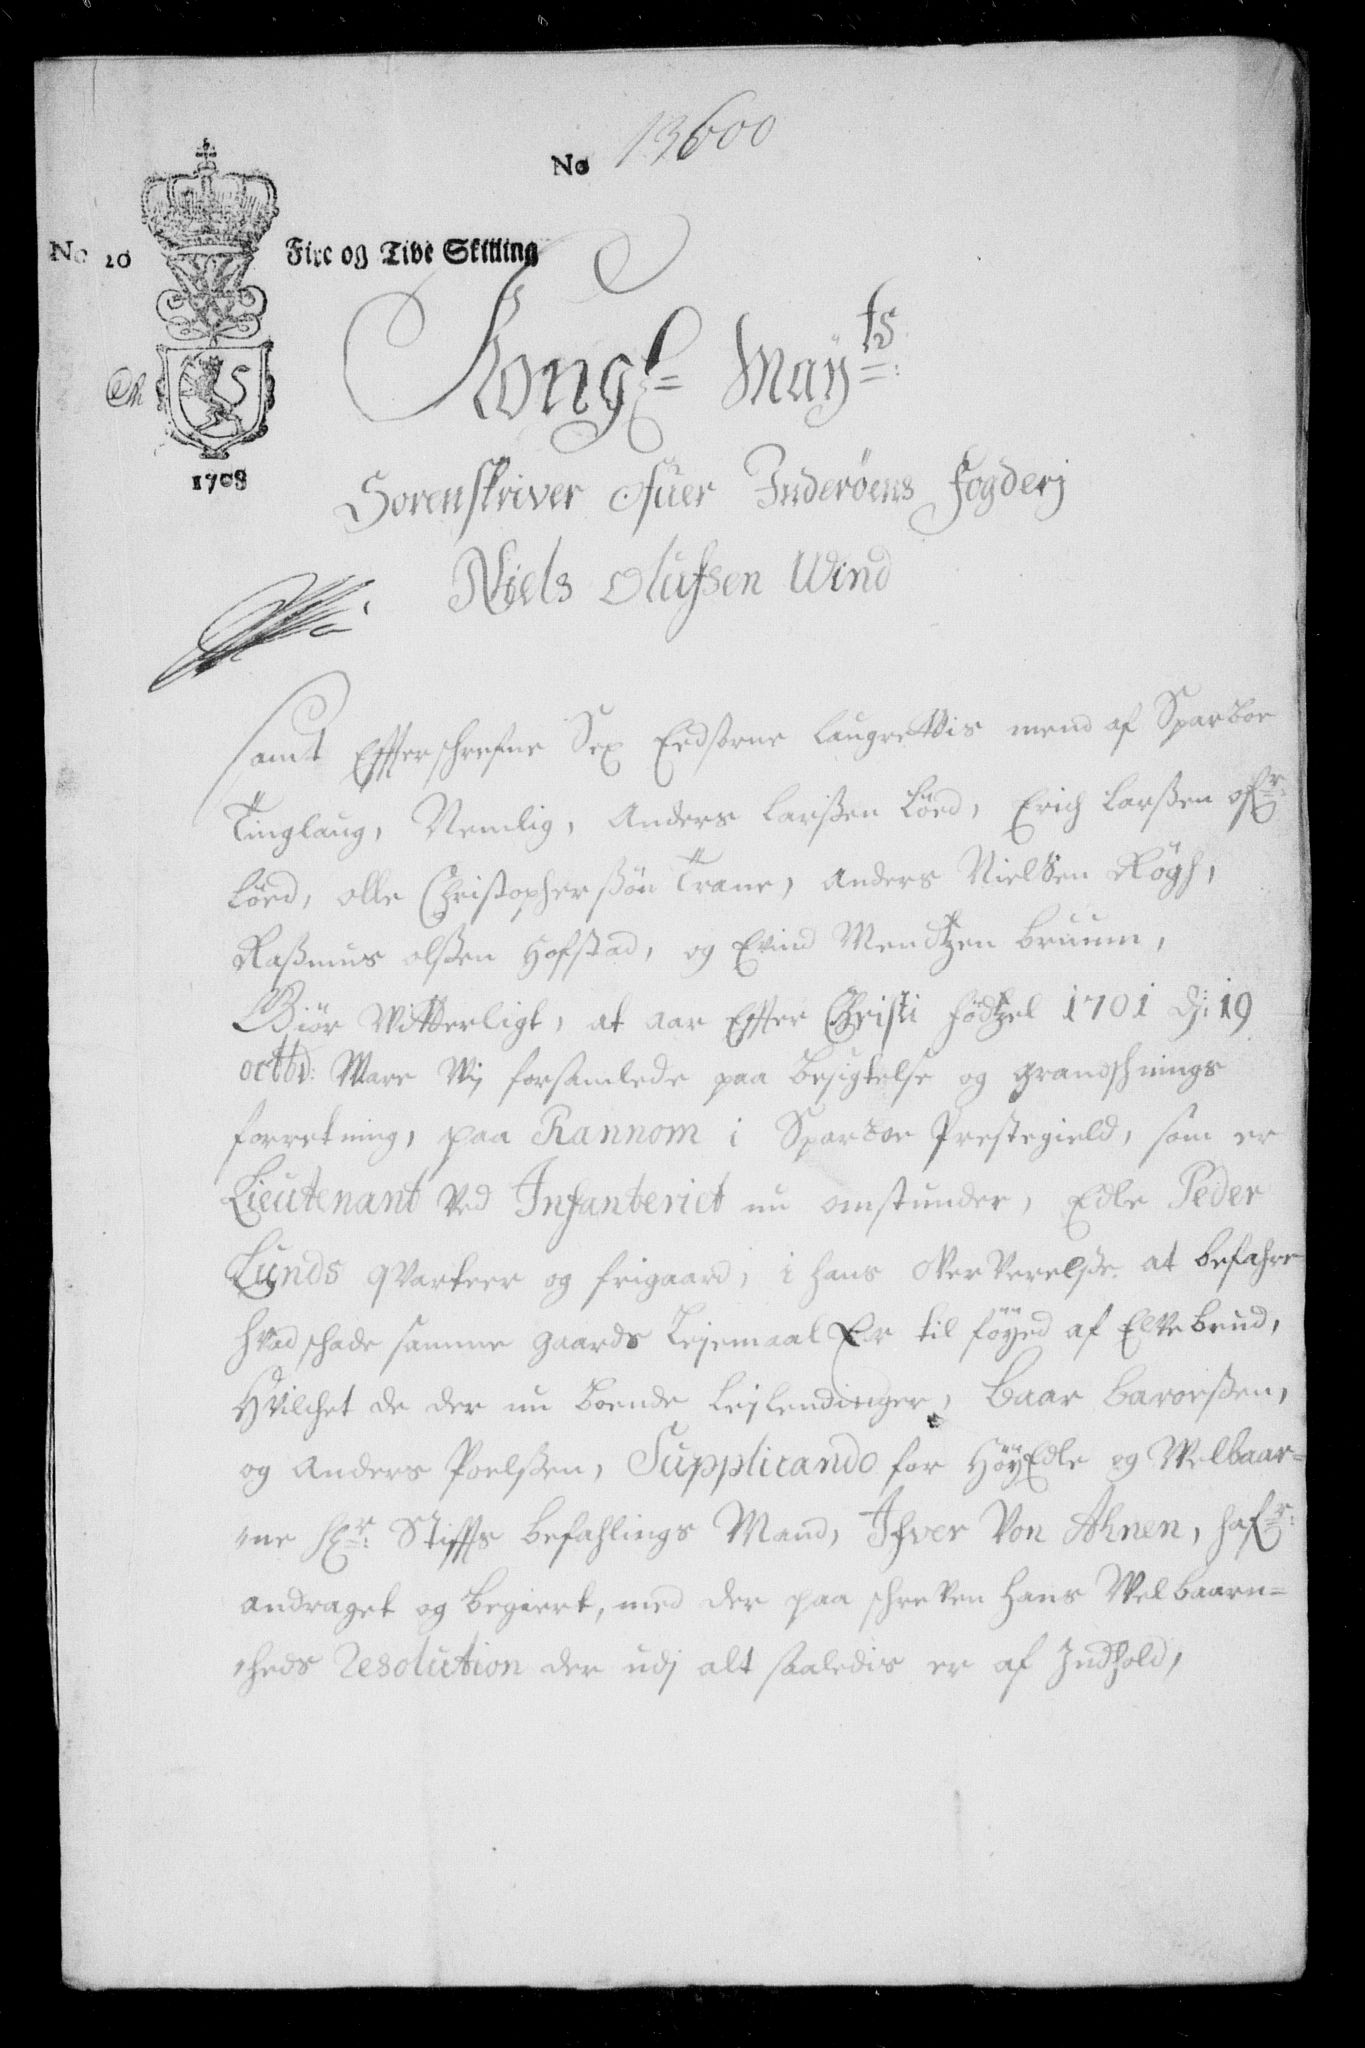 No 13600
No 20 Fire og Tive Skilling
1708
Kongl= Maÿts:
Sorenskriver ofuer Inderøens Fogderj
Niels Olufsen Wind
samt Effterschrefne Sex Eedsorne laugrettis mend af Sparboe
Tinglaug, Nemlig, Anders Larßen Löed, Erich Larßen ofr:
Löed, olle Christopherßön Trane, Anders Nielsen Rögh,
Raßmus olßen Hofstad, og Evind Mendtzen bruum,
Giör Witterligt, at aar Effter Christi födtzel 1701 d: 19
octb: Ware Wj forsamlede paa besigtelse og granschnings
forretning, paa Rannom i Sparboe Prestegield, som er
Lieutenant ved Infanteriet nu omstunder, Edle Peder
Lunds qvarteer og frigaard, i hans oververelße at befahre
hvad schade samme gaards Lejemaal Er til föÿed af Elvebrud,
Hvilchet de der nu boende Lejlendinger, Baar Baroeßen,
og Anders Poelßen, Supplicando for HöÿEdle og Welbaar=
ne Hr: Stiffts befahlings Mand, Ifver Von Ahnen, hafr:
andraget og begiert, med der paa schreven Hans Welbaarn=
heds Resolution der udj alt saaledis er af Indhold,